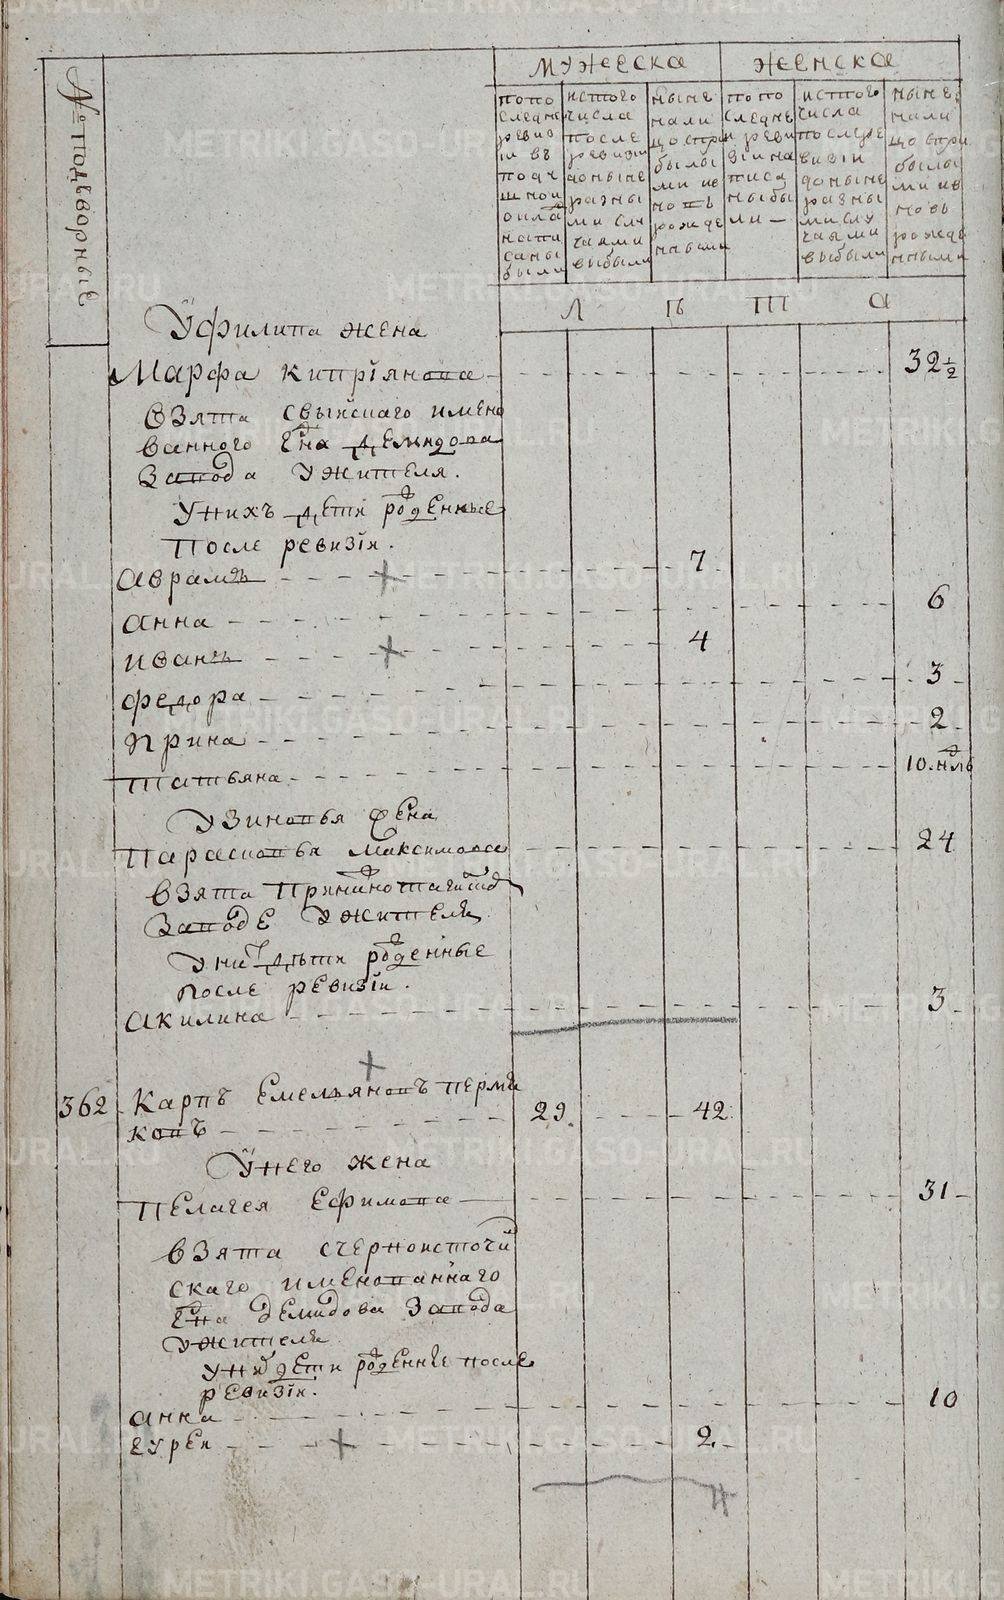 № подъворные
мужеска
женска
попо следне ревиз iи въ поду шной окла напи саны были
истого числа после ревизiи доныне разны ми слу чаями выбыли
ныне нали цо спри былы ми ив новь рожде нными
попо следне и реви зiи на писа ны бы ли —
истого числа после ре визiи доныне разны ми слу чаями выбыли
ныне нали цо спри былы ми ив новь рожде нными
Л Ѣ Т а
Уфилипа жена
Марфа Киприянова 32 1/2
Взята свыйскаго имено
ванного Ена Демидова
Завода Ужителя.
Унихъ дети роденные
После ревизiи.
Аврамъ 7
Анна 6
Иванъ 4
Федора 3
Ирина 2
Татьяна 10. нль
Узиновья жена
Парасковья Максимова 24
взята
Заводе Ужителя
Уни дѣти роденные
после ревизiи.
Акилина 3
362 Карпъ Емельяновъ перме
ковъ 29. 42
Унего жена
Пелагея Ефимова 31
Взята счерноисточи
скаго именованнаго
Ена Демидова Завода
Ужителя
Уни дети роденне после
ревизiи.
Анна 10
Гурей 2
METRIKI.GASO-URAL.RU